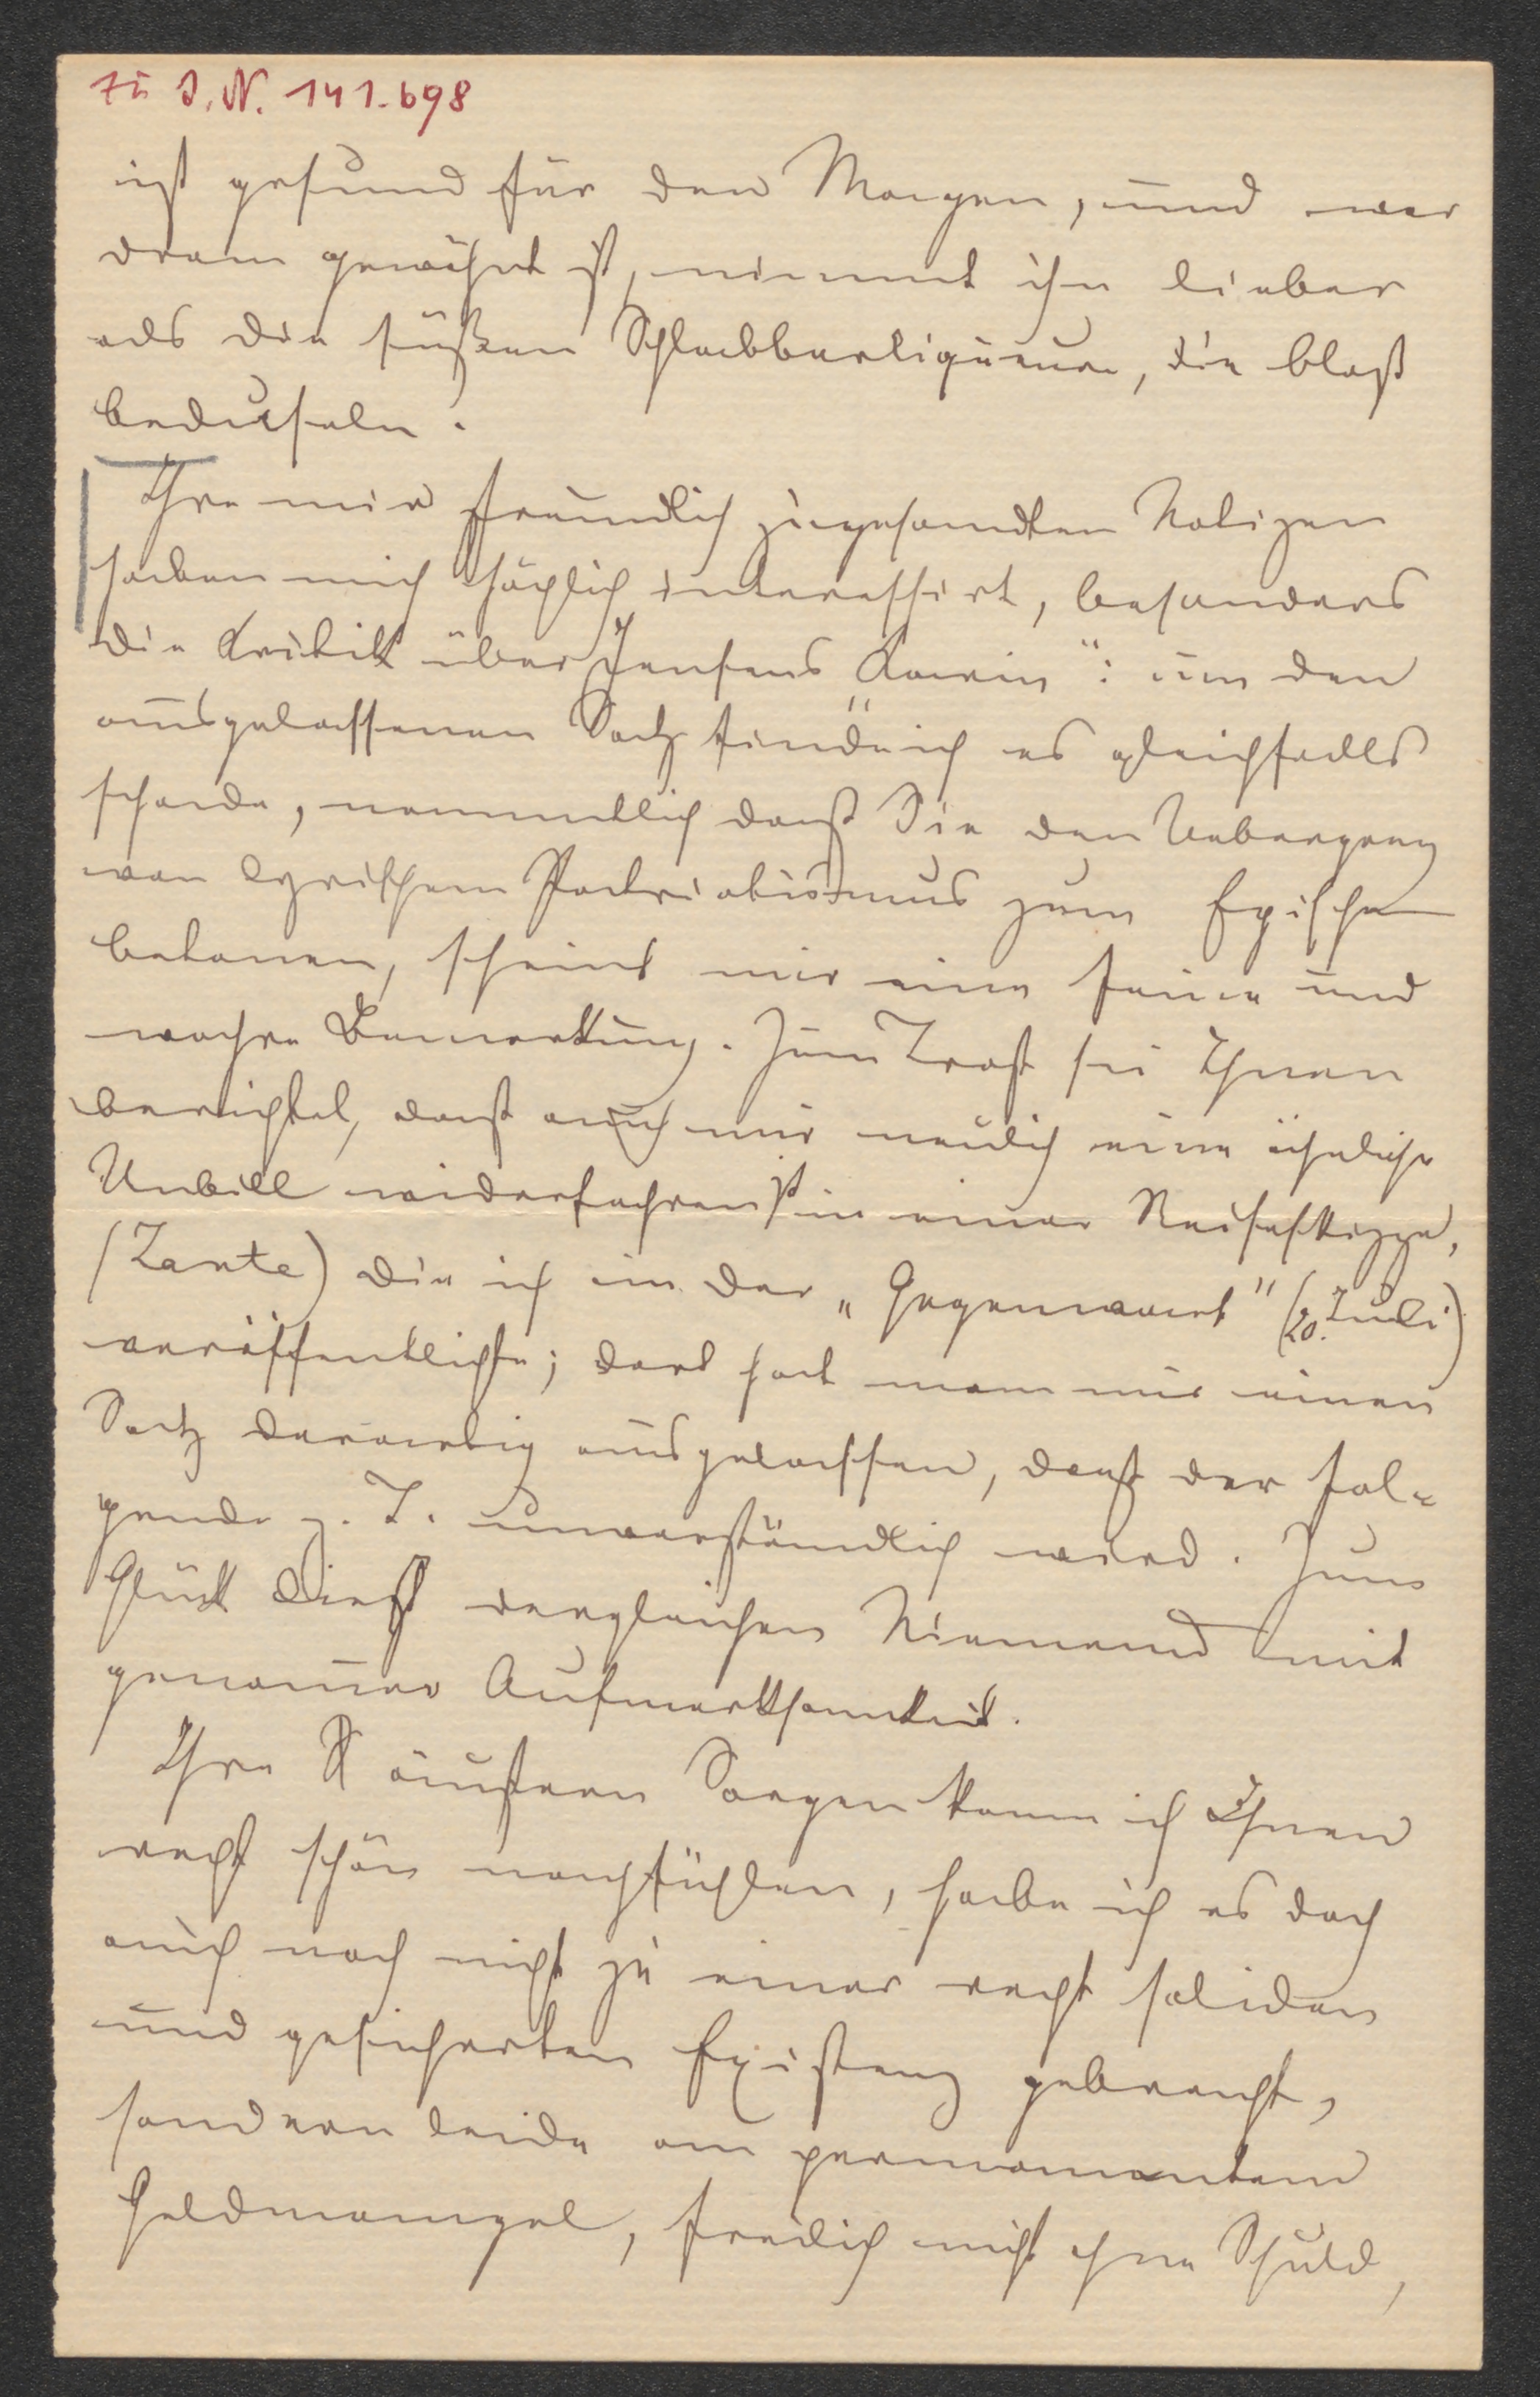 zu I. N. 141.698
ist gesund für den Magen, und wer
dran gewöhnt ist, nimmt ihn lieber
als die süßen Schlabberliqueure, die bloß
beduseln.
Ihre mir freundlich zugesandten Notizen
haben mich höchlich interessirt, besonders
die Kritik über Jensens „Karin“: um den
ausgelassenen Satz finde ich es gleichfalls
schade, namentlich daß Sie den Uebergang
von lyrischem Patriotismus zum Epischen
betonen, scheint mir eine feine und
wahre Bemerkung. Zum Trost sei Ihnen
berichtet, daß auch mir neulich eine ähnliche
Unbill widerfahren ist in einer Reiseskizze,
(Zante) die ich in der „Gegenwart“ (20. Juli)
veröffentlichte; dort hat man mir einen
Satz derartig ausgelassen, daß der fol-
gende z. T. unverständlich wird. Zum
Glück liest dergleichen Niemand mit
genauer Aufmerksamkeit.
Ihre äußeren Sorgen kann ich Ihnen
recht schön nachfühlen, habe ich es doch
auch noch nicht zu einer recht soliden
und gesicherten Existenz gebracht,
sondern leide an permanentem
Geldmangel, freilich nicht ohne Schuld,